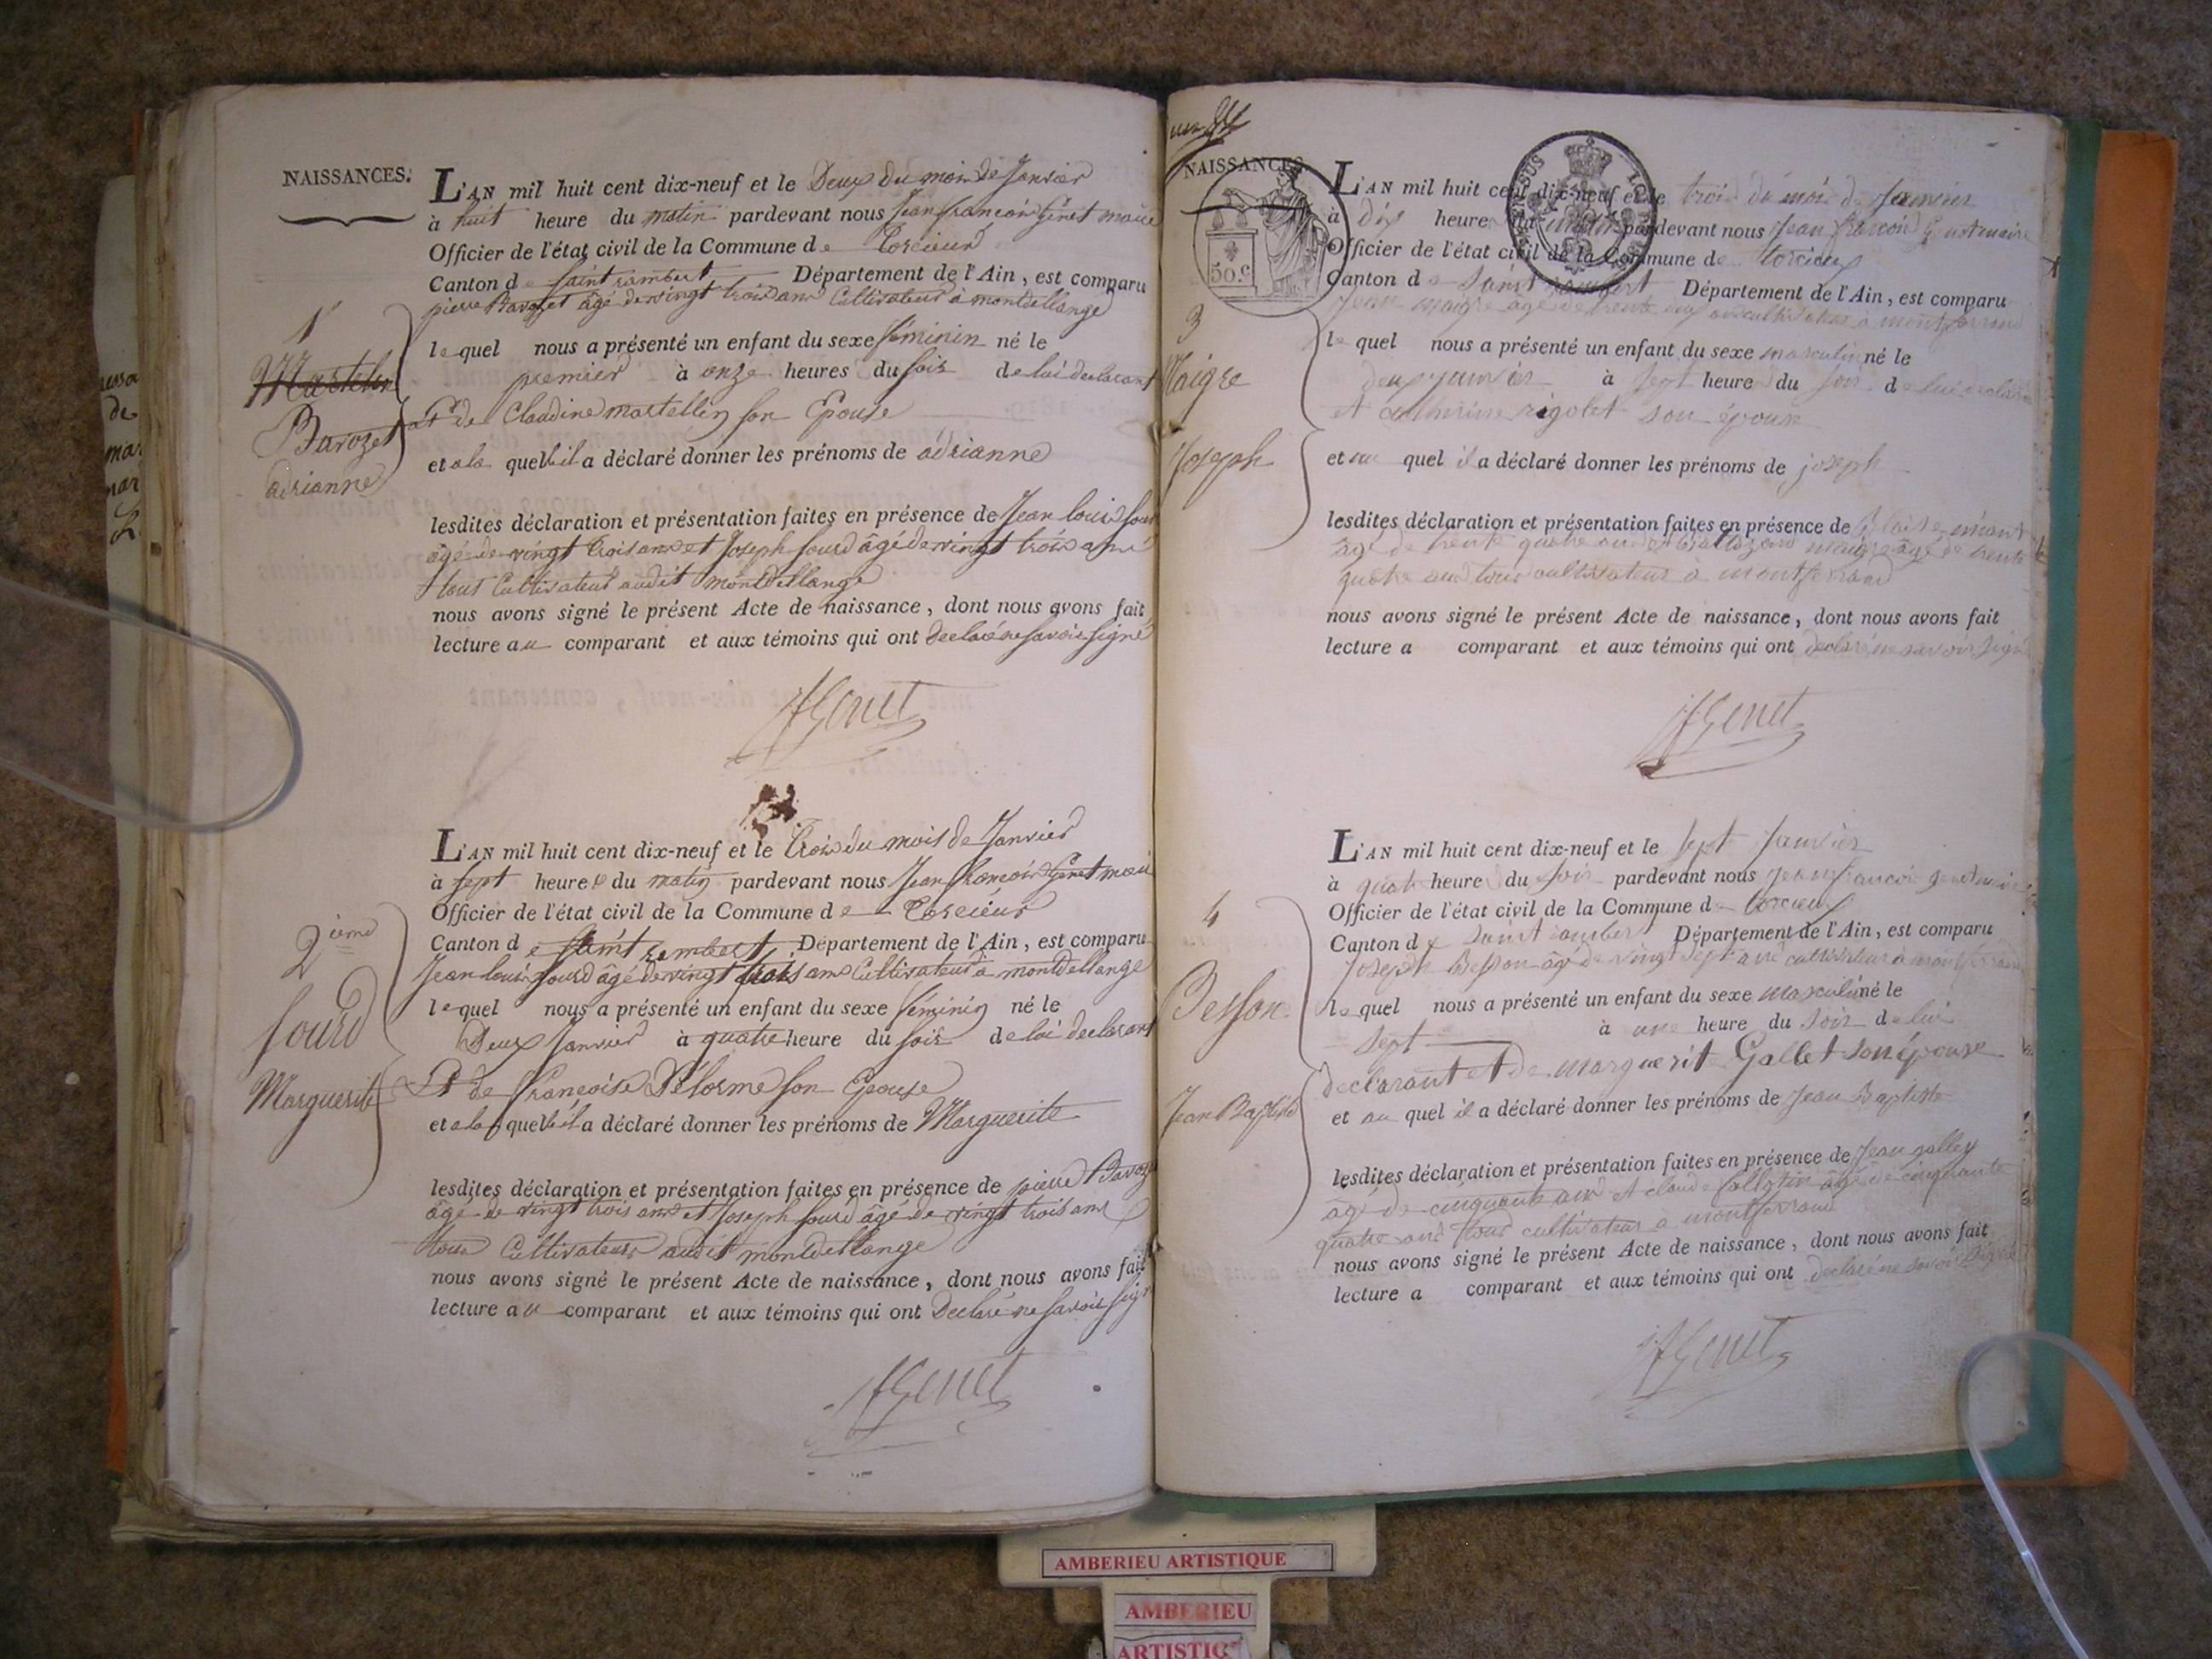 NAISSANCES.
L'AN mil huit cent dix-neuf et le Deux du mois de Janvier
à huit heure du matin pardevant nous Jean françois Genet maire
Officier de l'état civil de la Commune de Torcieux
Canton de Saint rambert Département de l'Ain, est comparu
pierre Barozet âgé de vingt trois ans Cultivateur à montdellange
1er
Martelin
Barozet
adrianne
lequel nous a présenté un enfant du sexe féminin né le
premier à onze heures du soir de lui declarant
et de Claudine martellin son Epouse
et a la quelle il a déclaré donner les prénoms de adrianne
lesdites déclaration et présentation faites en présence de Jean louis sourd
âgé de vingt trois ans et Joseph sourd âgé de vingt trois ans
tous Cultivateur audit montdellange
nous avons signé le présent Acte de naissance, dont nous avons fait
lecture au comparant et aux témoins qui ont declaré ne savoir signé
JfGenet
L'AN mil huit cent dix-neuf et le Trois du mois de Janvier
à sept heure du matin pardevant nous Jean francois Genet mair
Officier de l'état civil de la Commune de Torcieux
Canton de Saint rambert Département de l'Ain, est comparu
Jean louis sourd âgé de vingt trois ans Cultivateur à montdellange
2ieme
sourd
Marguerite
lequel nous a présenté un enfant du sexe féminin né le
Deux Janvier à quatre heure du soir de lui declarant
Et de françoise Delorme son Epouse
et a la quelle il a déclaré donner les prénoms de Marguerite
lesdites déclaration et présentation faites en présence de pierre Baroz
âgé de vingt trois ans et Joseph sourd âgé de vingt trois ans
tous Cultivateurs audit montdellange
nous avons signé le présent Acte de naissance, dont nous avons fait
lecture au comparant et aux témoins qui ont Declaré ne savoir sign
JfGenet
NAISSANCES
50.c
L'AN mil huit cent dix-neuf et le trois du mois de Janvier
à dix heure du matin pardevant nous Jean francois Genet maire
Officier de l'état civil de la Commune de torcieux
Canton de Saint rambert Département de l'Ain, est comparu
Jean maigre âgé de trente ans cultivateur à montferrand
3
Maigre
Joseph
lequel nous a présenté un enfant du sexe masculin né le
deux janvier à sept heure du soir de lui declarant
et catherine rigolet son épouse
et au quel il a déclaré donner les prénoms de joseph
lesdites déclaration et présentation faites en présence de
âgé de trente quatre ans et Baltazard maigre âgé de trente
quatre ans tous cultivateur à montferrand
nous avons signé le présent Acte de naissance, dont nous avons fait
lecture a comparant et aux témoins qui ont declaré ne savoir signé
JfGenet
L'AN mil huit cent dix-neuf et le sept Janvier
à quatre heure du soir pardevant nous Jean francois genet maire
Officier de l'état civil de la Commune de torcieux
Canton de Saint rambert Département de l'Ain, est comparu
Joseph Besson âgé de vingt sept ans cultivateur à montferrand
4
Besson
Jean Baptiste
lequel nous a présenté un enfant du sexe masculin né le
sept à une heure du soir de lui
declarant et de marguerite Gallet son épouse
et au quel il a déclaré donner les prénoms de Jean Baptiste
lesdites déclaration et présentation faites en présence de Jean galley
âgé de cinquante ans et claude âgé de cinquante
quatre ans tous cultivateur à montferrand
nous avons signé le présent Acte de naissance, dont nous avons fait
lecture a comparant et aux témoins qui ont declaré ne savoir signé
JfGenet
AMBERIEU ARTISTIQUE
AMBERIEU
ARTISTIQ